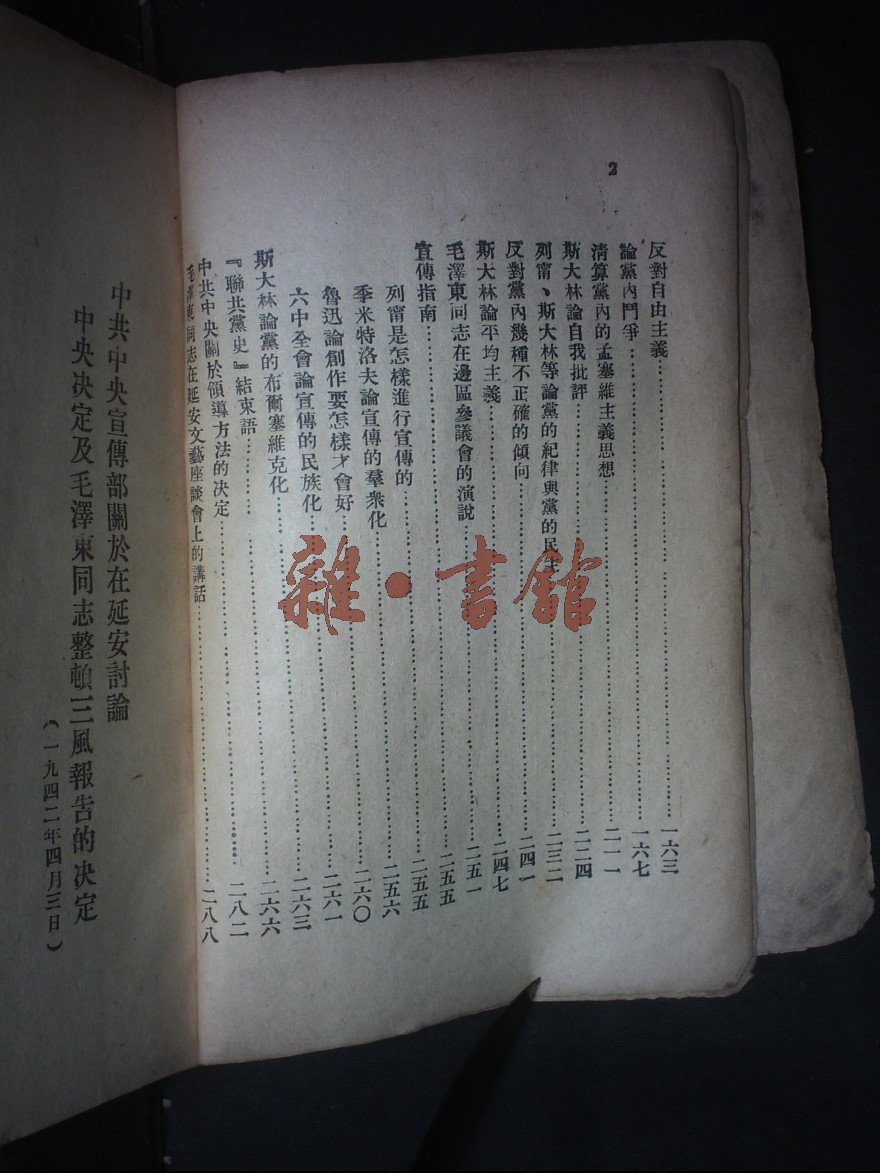 2
反對自由主義……一六三
論黨內鬥爭……一六七
清算黨內的孟塞維主義思想……二一一
斯大林論自我批評……二二四
列甯、斯大林等論黨的紀律與黨的民主……二三二
反對黨內幾種不正確的傾向……二四一
斯大林論平均主義……二四七
毛澤東同志在邊區參議會的演說……二五一
宣傳指南……二五五
列甯是怎樣進行宣傳的……二五五
季米特洛夫論宣傳的羣衆化……二五六
魯迅論創作要怎樣才會好……二六〇
六中全會論宣傳的民族化……二六一
斯大林論黨的布爾塞維克化……二六三
『聯共黨史』結束語……二六六
中共中央關於領導方法的決定……二八二
毛澤東同志在延安文藝座談會上的講話……二八八
中共中央宣傳部關於在延安討論
中央決定及毛澤東同志整頓三風報告的決定
（一九四二年四月三日）
雜·書館